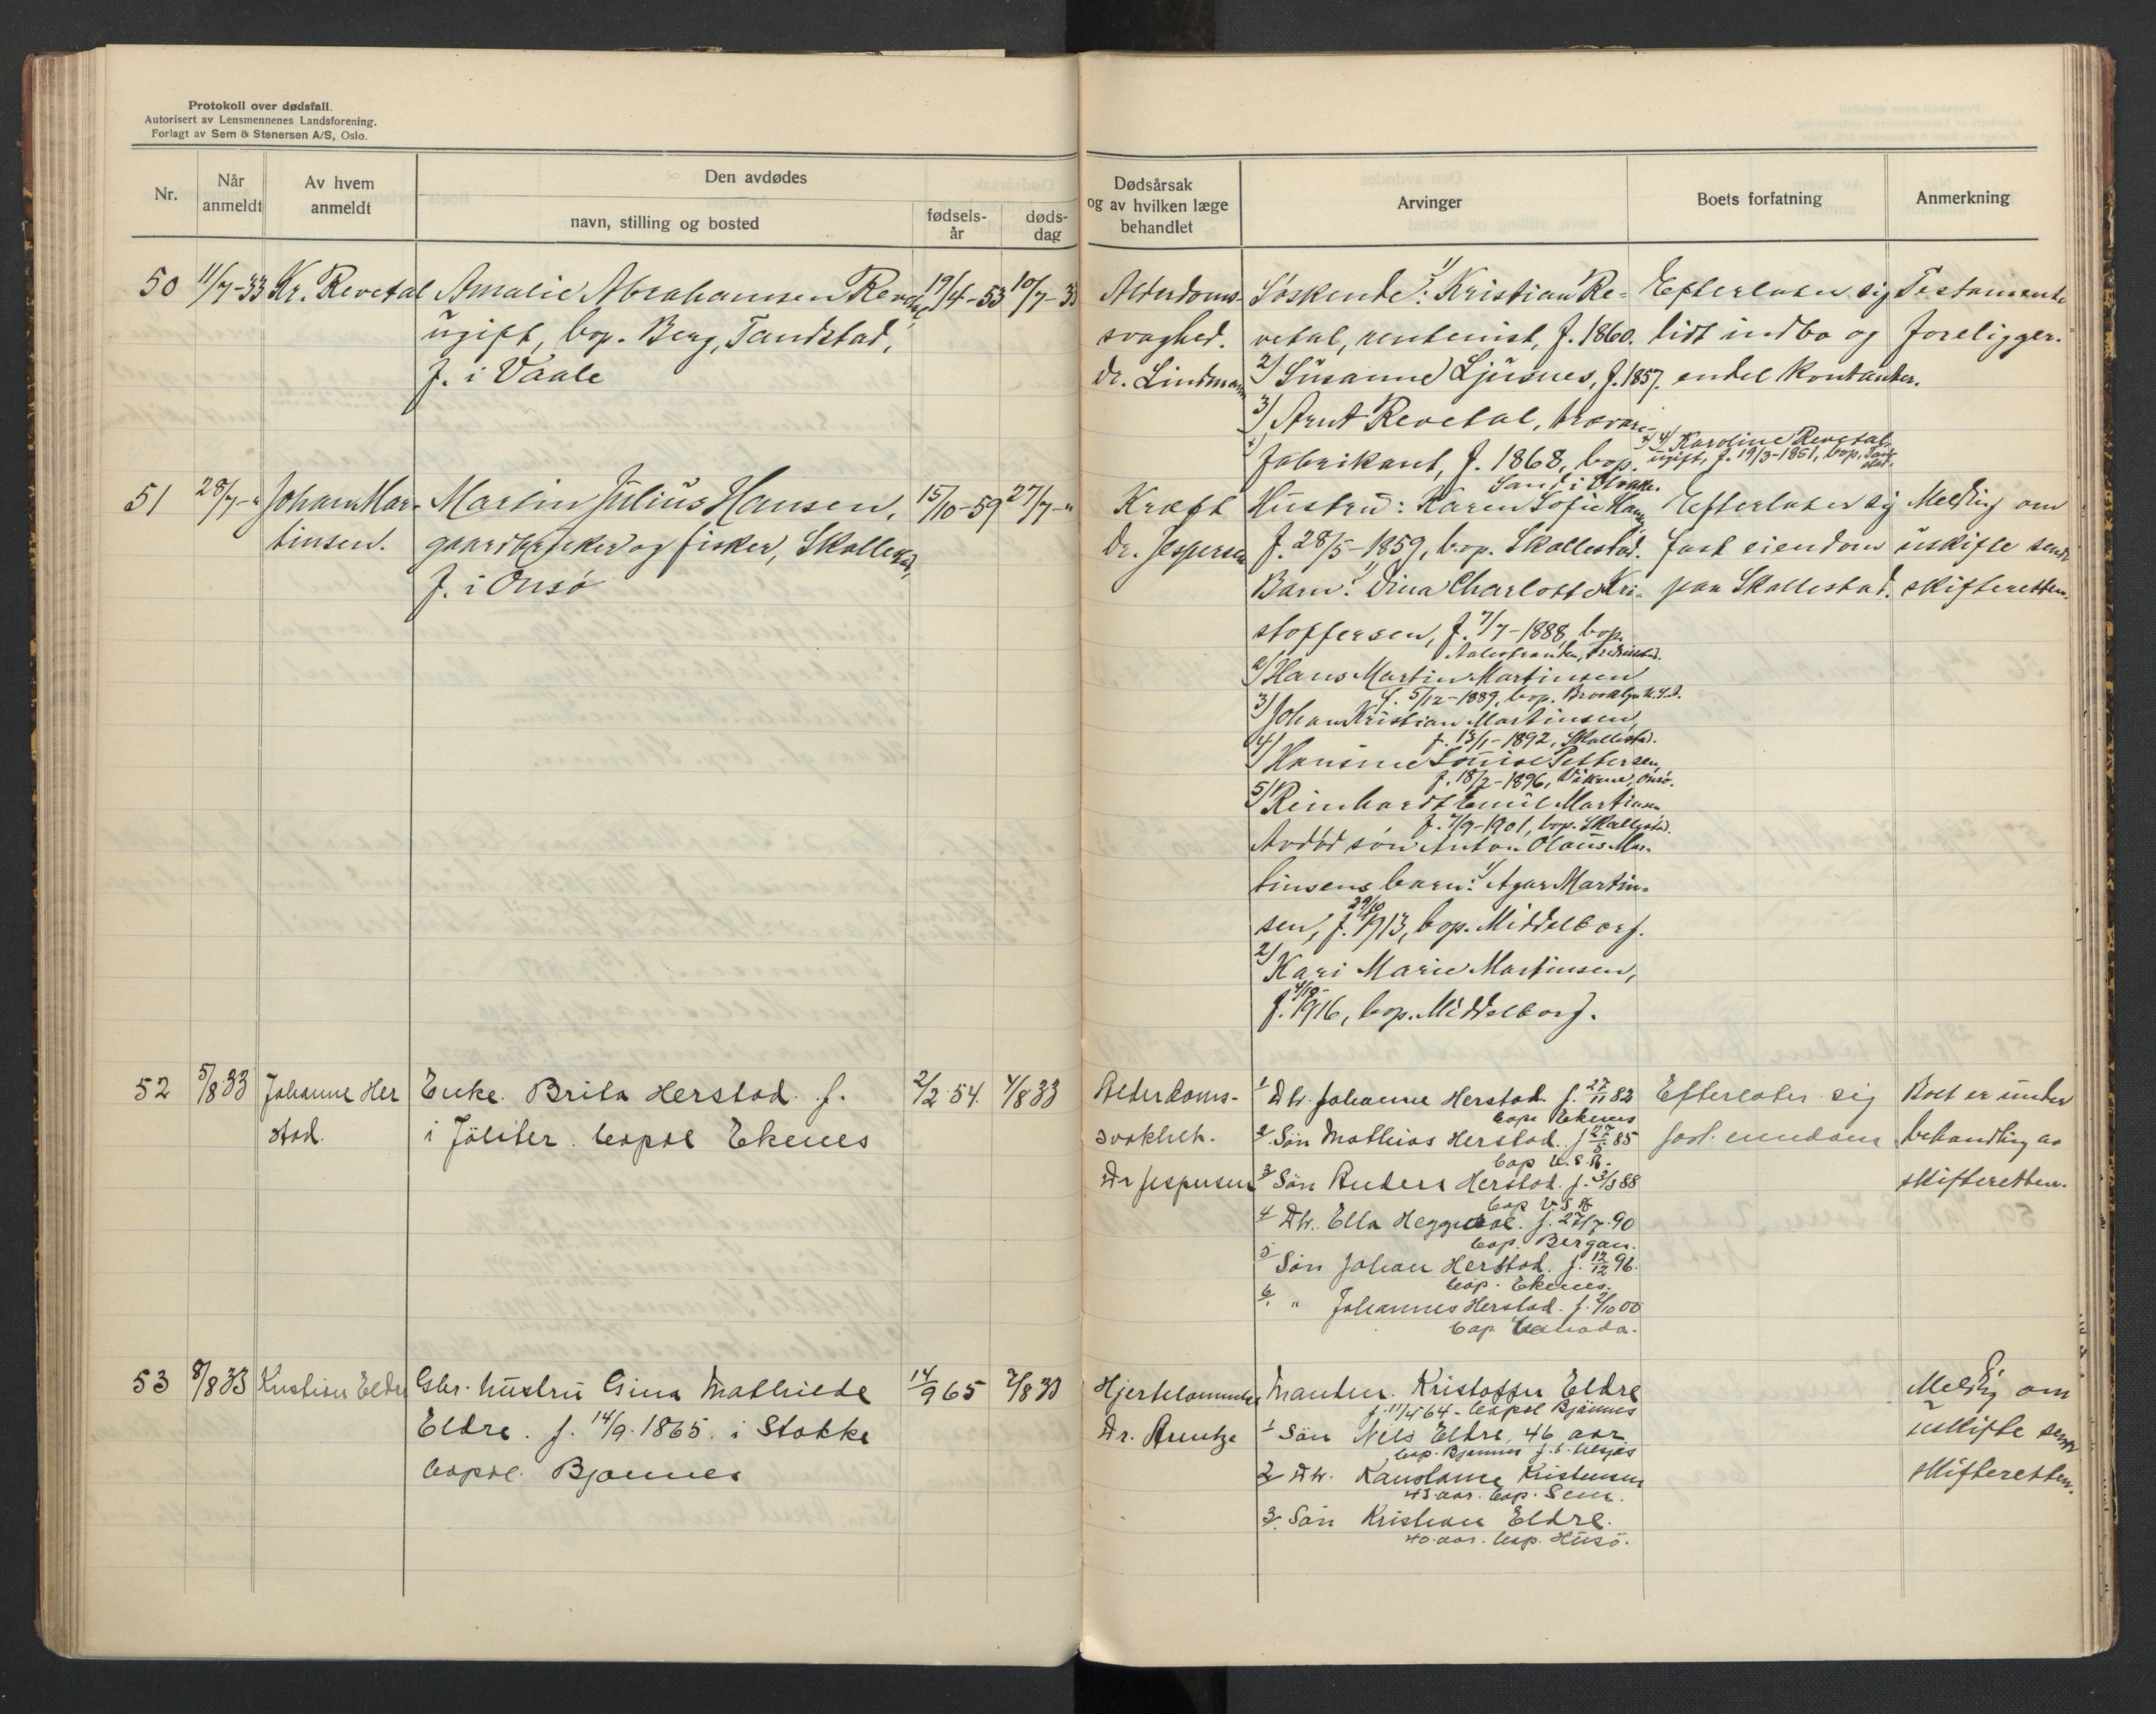 Protokoll over dødsfall.
Autorisert av Lensmennenes Landsforening.
Forlagt av Sem & Stenersen A/S, Oslo.
Nr.
Når anmeldt
Av hvem anmeldt
Den avdødes
navn, stilling og bosted
fødsels-år
døds-dag
Dødsårsak og av hvilken læge behandlet
Arvinger
Boets forfatning
Anmerkning
50 11/7-33 Kr. Revetal
Amalie Abrahamsen Revetal,
ugift, bop. Berg, Tandstad,
f. i Vaale
19/4-53 10/7-33
Alderdoms-
svaghed.
Dr. Lindmann
Søskende: 1/ Kristian Re-
vetal, rentenist, f. 1860.
2/ Susanne Ljusnes, f. 1857.
3/ Arnt Revetal, trævare-
fabrikant, f. 1868, bop.
Sand i Stokke.
4/ Karoline Revetal,
ugift, f. 19/3-1851, bop. Tand-
stad.
Efterlater sig
lidt indbo og
endel kontanter.
Testamente
foreligger.
51 28/7-" Johan Mar-
tinsen.
Martin Julius Hansen,
gaardbruker og fisker, Skallestad,
f. i Onsø
15/10-59 27/7-"
Kræft
Dr. Jespersen
Hustru: Karen Sofie Hansen,
f. 28/5-1859, bop. Skallestad.
Barn: 1/ Dina Charlotte Kri-
stoffersen, f. 7/7-1888, bop.
2/ Hans Martin Martinsen
f. 5/12-1889, bop. Brooklyn U.S.A.
3/ Johan Kristian Martinsen,
f. 13/1-1892, Skallestad.
4/ Hansine Lovise Pettersen,
f. 18/2-1896, Vikene, Onsø.
5/ Reinhardt Emil Martinsen
f. 7/9-1901, bop. Skallestad.
Avdød søn Anton Olaus Mar-
tinsens barn: 1/ Agar Martin-
sen, f. 29/10 1913, bop. Middelborg.
2/ Kari Marie Martinsen,
f. 4/10-1916, bop. Middelborg.
Efterlater sig
fast eiendom
paa Skallestad.
Melding om
uskifte sendt
skifteretten.
52 5/8 33 Johanne Her
stad.
Enke. Brita Herstad. f.
i Jölster. bopæl Ekenes
2/2 54. 4/8 33
Alderdoms-
svakhet.
Dr Jespersen
1/ Dtr. Johanne Herstad. f. 27/11 82
bop. Ekenes
2/ Søn Mathias Herstad. f. 27/5 85
bop U.S.A.
3/ Søn Anders Herstad. f. 3/3 88
bop U S A
4/ Dtr. Ella Heggedal. f. 27/7.90
bop. Bergan.
5/ Søn Johan Herstad. f. 12/12 96.
bop. Ekenes.
6/ " Johannes Herstad. f. 2/10 00
bop. Canada.
Efterlater sig
fast eiendom
Boet er under
behandling av
skifteretten.
53 8/8 33 Kristian Eldre
Gbr. hustru Gina Mathilde
Eldre. f. 14/9.1865. i Stokke
bopæl. Bjønnes
14/9 65 7/8 33
Hjertelammelse
Dr. Arentze
Manden. Kristoffer Eldre
f. 11/4 64 - bopæl Bjønnes
1/ Søn Nils Eldre, 46 aar
2/ Dtr. Konstance Kristensen
43 aar. bop. Sem.
3/ Søn Kristian Eldre.
40 aar. bop. Husø.
Melding om
uskifte sendt
skifteretten.